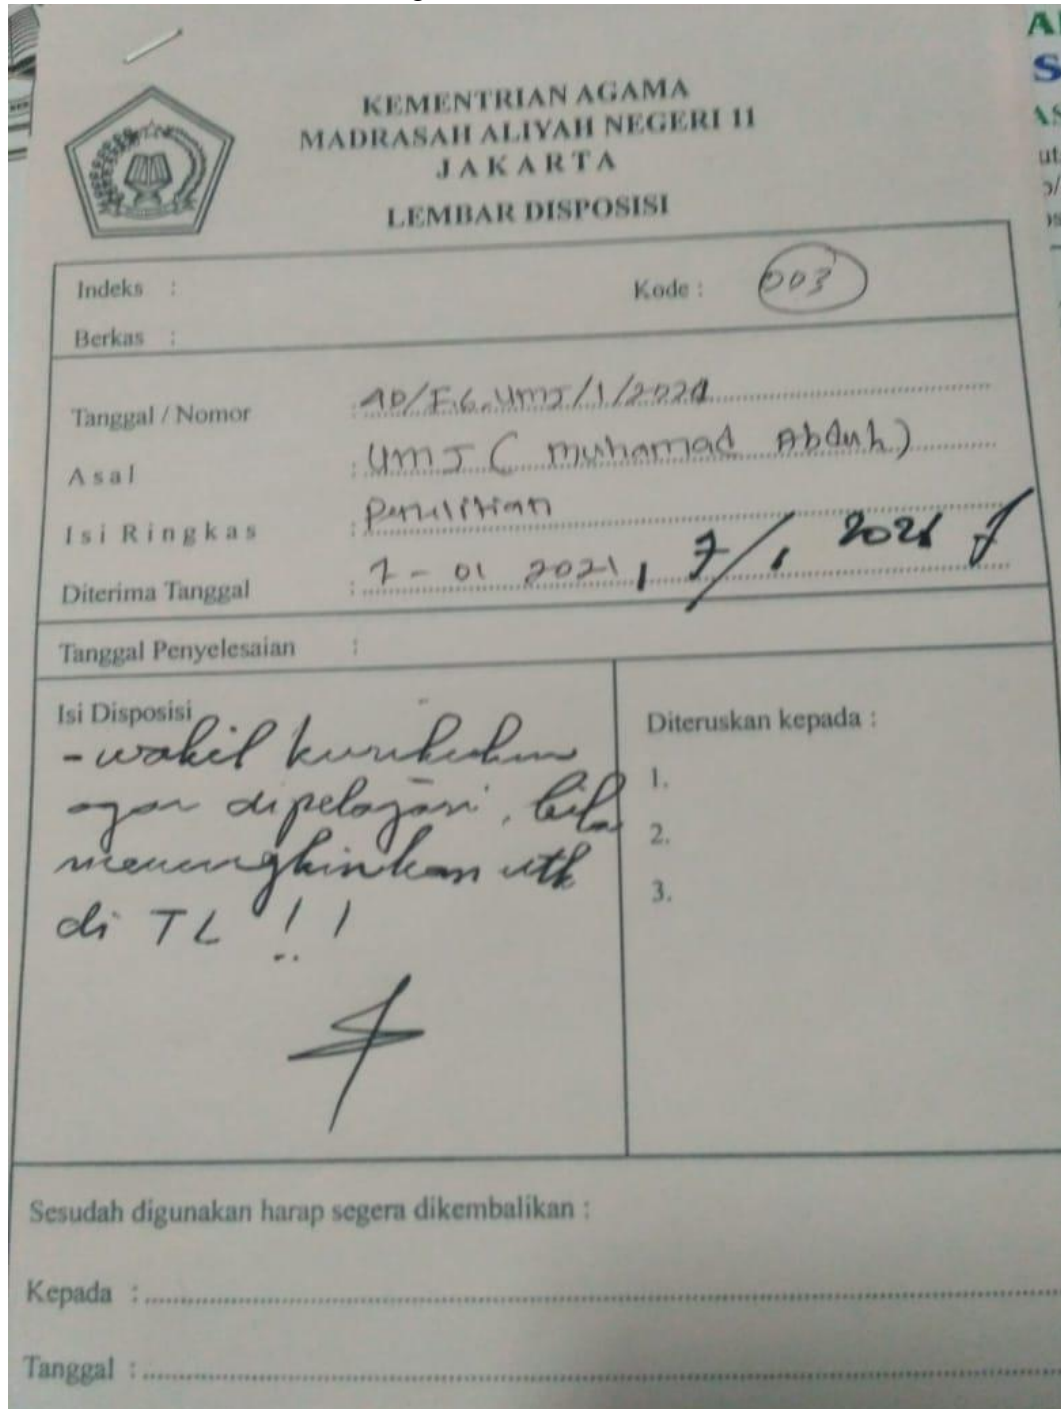 KEMENTRIAN AGAMA
MADRASAH ALIYAH NEGERI 11
JAKARTA
LEMBAR DISPOSISI
Indeks : Kode : 003
Berkas :
Tanggal / Nomor : AD/F.6.UMJ/1/2021
Asal : UMJ ( Muhamad Abduh )
Isi Ringkas : Penelitian
Diterima Tanggal : 7 - 01 2021, 7/1 2021
Tanggal Penyelesaian :
Isi Disposisi
- wakil kurikulum
agar dipelajari, bila
memungkinkan utk
di TL !!
Diteruskan kepada :
1.
2.
3.
Sesudah digunakan harap segera dikembalikan :
Kepada :
Tanggal :